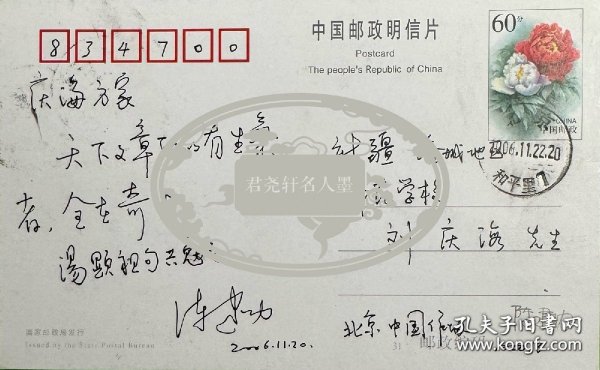 834700
中国邮政明信片
Postcard
The people's Republic of China
60分
CHINA
中国邮政
2006.11.22.20
和平里7
庆海方家
天下文章 有生气
者,全在奇
湯顯祖句共勉
2006.11.20.
新疆 城地区
学校
刘庆海先生
北京中国
国家邮政局发行
Issued by the State Postal Bureau
君尧轩名人墨
孔夫子旧书网